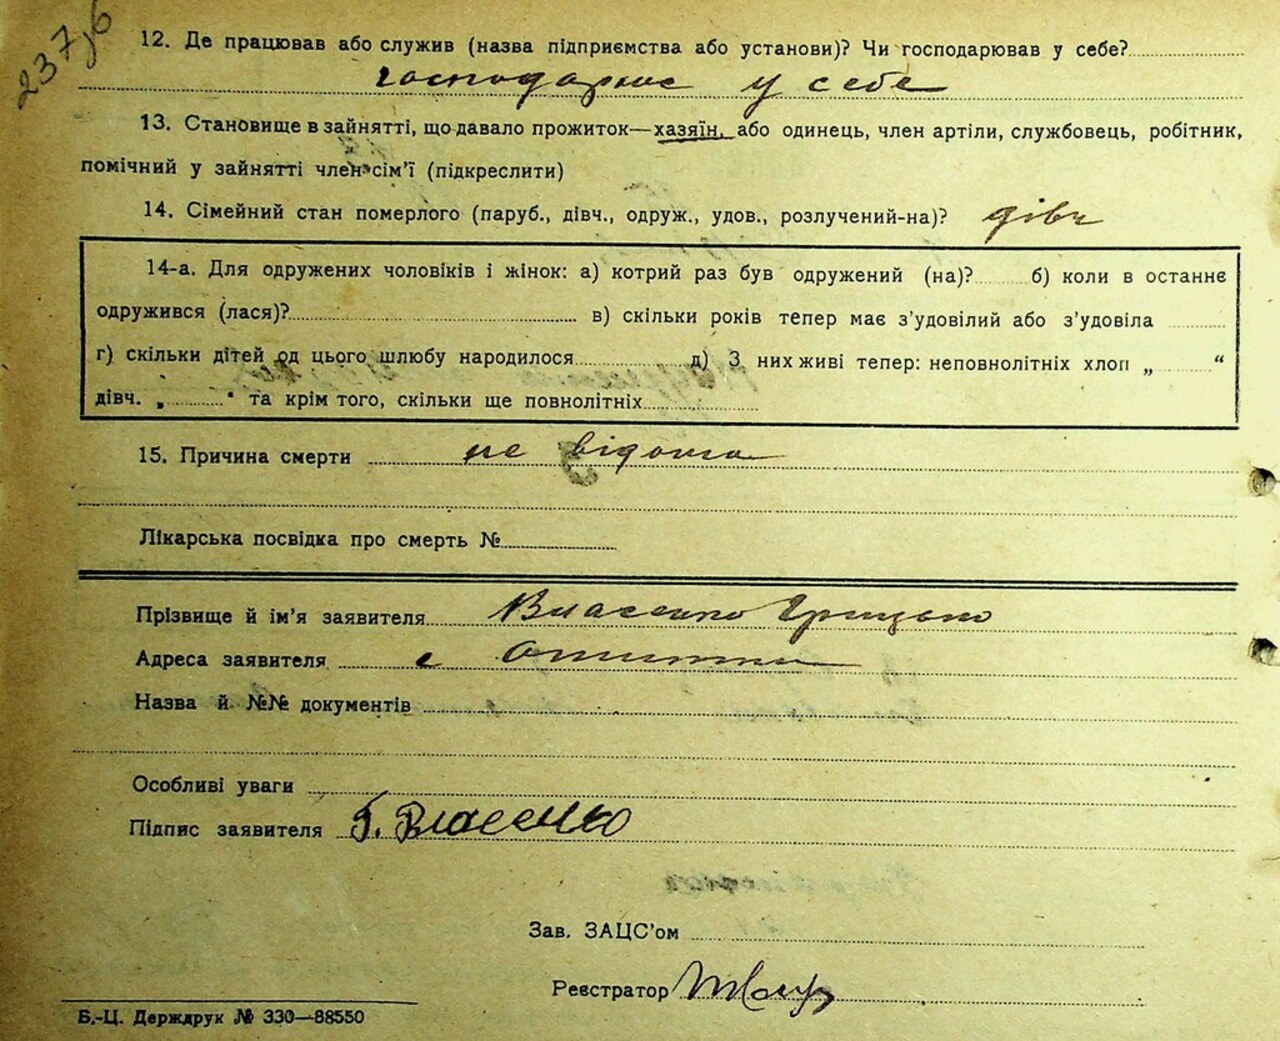 237 б
12. Де працював або служив (назва підприємства або установи)? Чи господарював у себе?
господарює у себе
13. Становище в зайнятті, що давало прожиток—хазяїн, або одинець, член артіли, службовець, робітник,
помічний у зайнятті член сім'ї (підкреслити)
14. Сімейний стан померлого (паруб., дівч., одруж., удов., розлучений-на)? дівч
14-а. Для одружених чоловіків і жінок: а) котрий раз був одружений (на)? б) коли в останнє
одружився (лася)? в) скільки років тепер має з'удовілий або з'удовіла
г) скільки дітей од цього шлюбу народилося д) З них живі тепер: неповнолітніх хлоп „ “
дівч. „ “ та крім того, скільки ще повнолітніх
15. Причина смерти не відома
Лікарська посвідка про смерть №
Прізвище й ім'я заявителя Власенко Грицько
Адреса заявителя с
Назва й №№ документів
Особливі уваги
Підпис заявителя Г. Власенко
Зав. ЗАЦС'ом
Реєстратор
Б.-Ц. Держдрук № 330—88550